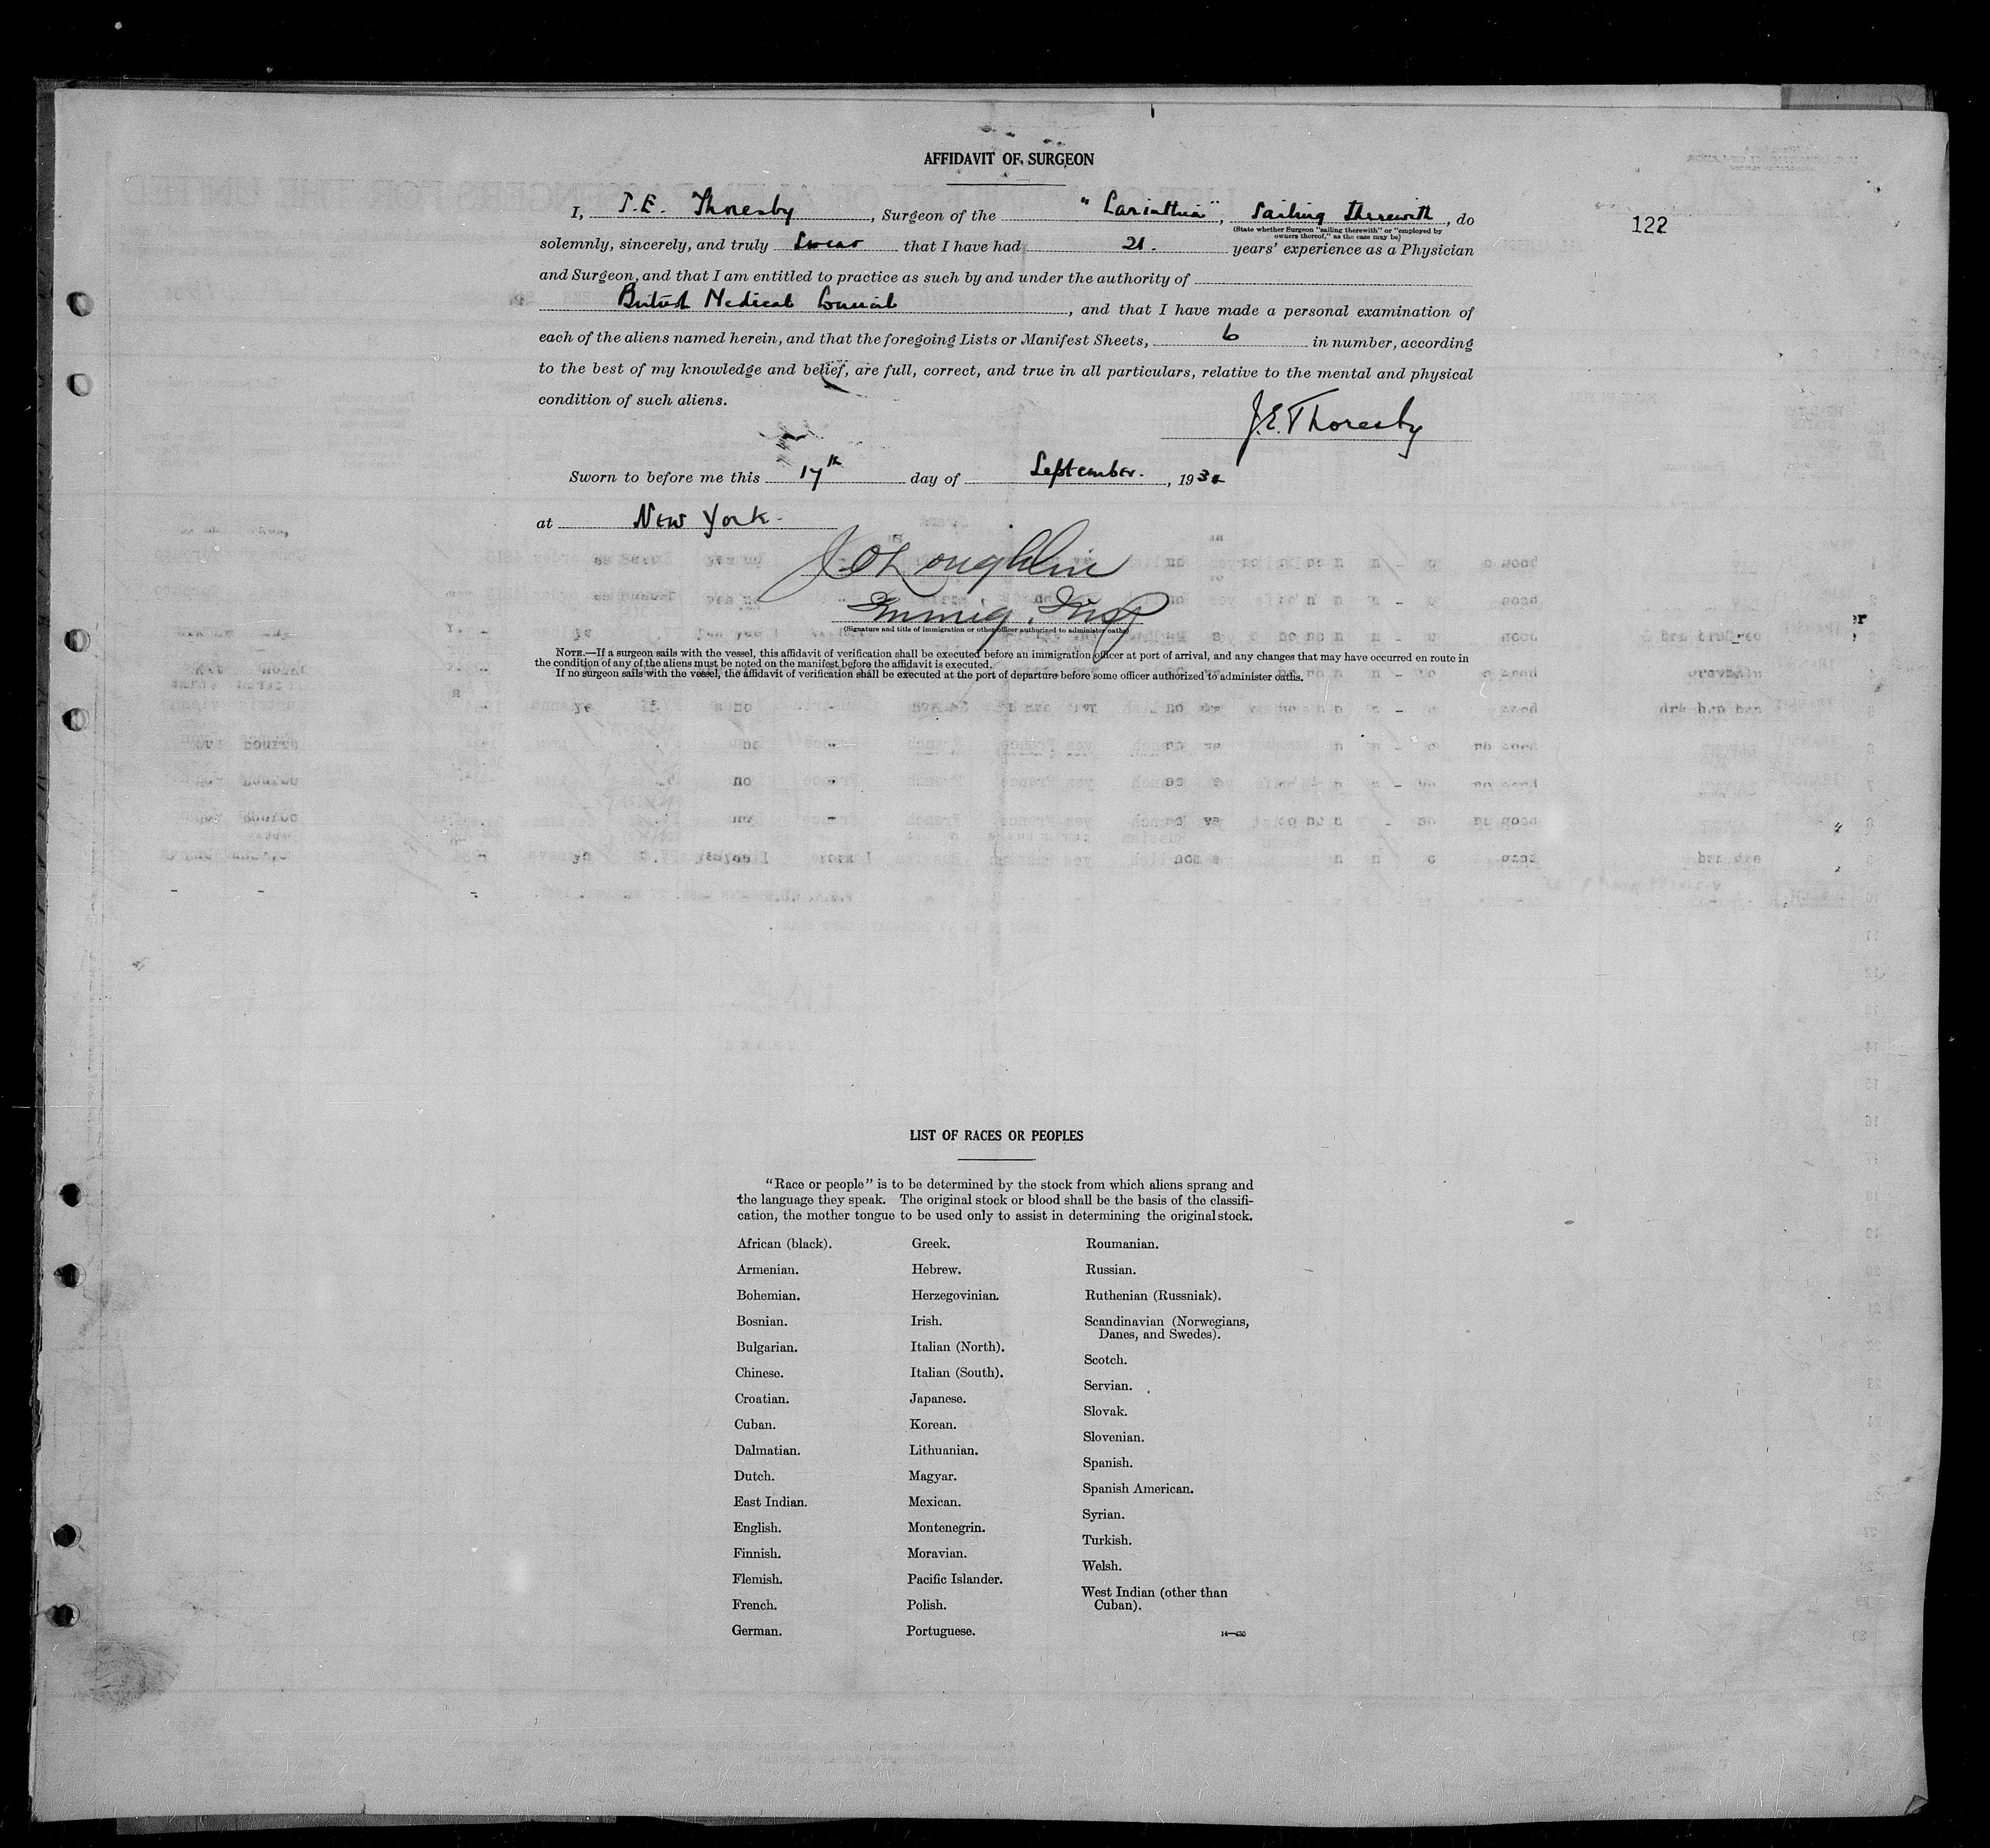 AFFIDAVIT OF SURGEON
I, J.E. Thoresby, Surgeon of the "Carinthia", Sailing therewith, do
(State whether Surgeon "sailing therewith" or "employed by
owners thereof," as the case may be)
122
solemnly, sincerely, and truly swear that I have had 21. years' experience as a Physician
and Surgeon, and that I am entitled to practice as such by and under the authority of
British Medical Council, and that I have made a personal examination of
each of the aliens named herein, and that the foregoing Lists or Manifest Sheets, 6 in number, according
to the best of my knowledge and belief, are full, correct, and true in all particulars, relative to the mental and physical
condition of such aliens.
J.E. Thoresby
Sworn to before me this 17th day of September. , 193
at New York.
J. O'Loughlin
Immig. Insp
(Signature and title of immigration or other officer authorized to administer oaths)
NOTE.—If a surgeon sails with the vessel, this affidavit of verification shall be executed before an immigration officer at port of arrival, and any changes that may have occurred en route in
the condition of any of the aliens must be noted on the manifest before the affidavit is executed.
If no surgeon sails with the vessel, the affidavit of verification shall be executed at the port of departure before some officer authorized to administer oaths.
LIST OF RACES OR PEOPLES
"Race or people" is to be determined by the stock from which aliens sprang and
the language they speak. The original stock or blood shall be the basis of the classifi-
cation, the mother tongue to be used only to assist in determining the original stock.
African (black).
Armenian.
Bohemian.
Bosnian.
Bulgarian.
Chinese.
Croatian.
Cuban.
Dalmatian.
Dutch.
East Indian.
English.
Finnish.
Flemish.
French.
German.
Greek.
Hebrew.
Herzegovinian.
Irish.
Italian (North).
Italian (South).
Japanese.
Korean.
Lithuanian.
Magyar.
Mexican.
Montenegrin.
Moravian.
Pacific Islander.
Polish.
Portuguese.
Roumanian.
Russian.
Ruthenian (Russniak).
Scandinavian (Norwegians,
Danes, and Swedes).
Scotch.
Servian.
Slovak.
Slovenian.
Spanish.
Spanish American.
Syrian.
Turkish.
Welsh.
West Indian (other than
Cuban).
14—430